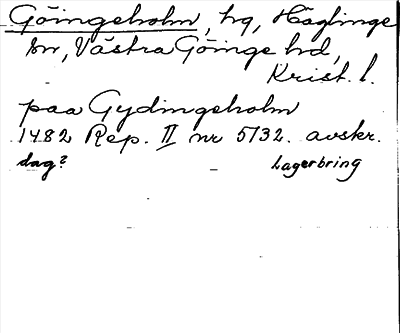 Göingeholm, hg, Häglinge
sn, Västra Göinge hd,
Krist. l.
paa Gydingeholm
1482 Rep. II nr 5132. avskr.
dag? Lagerbring